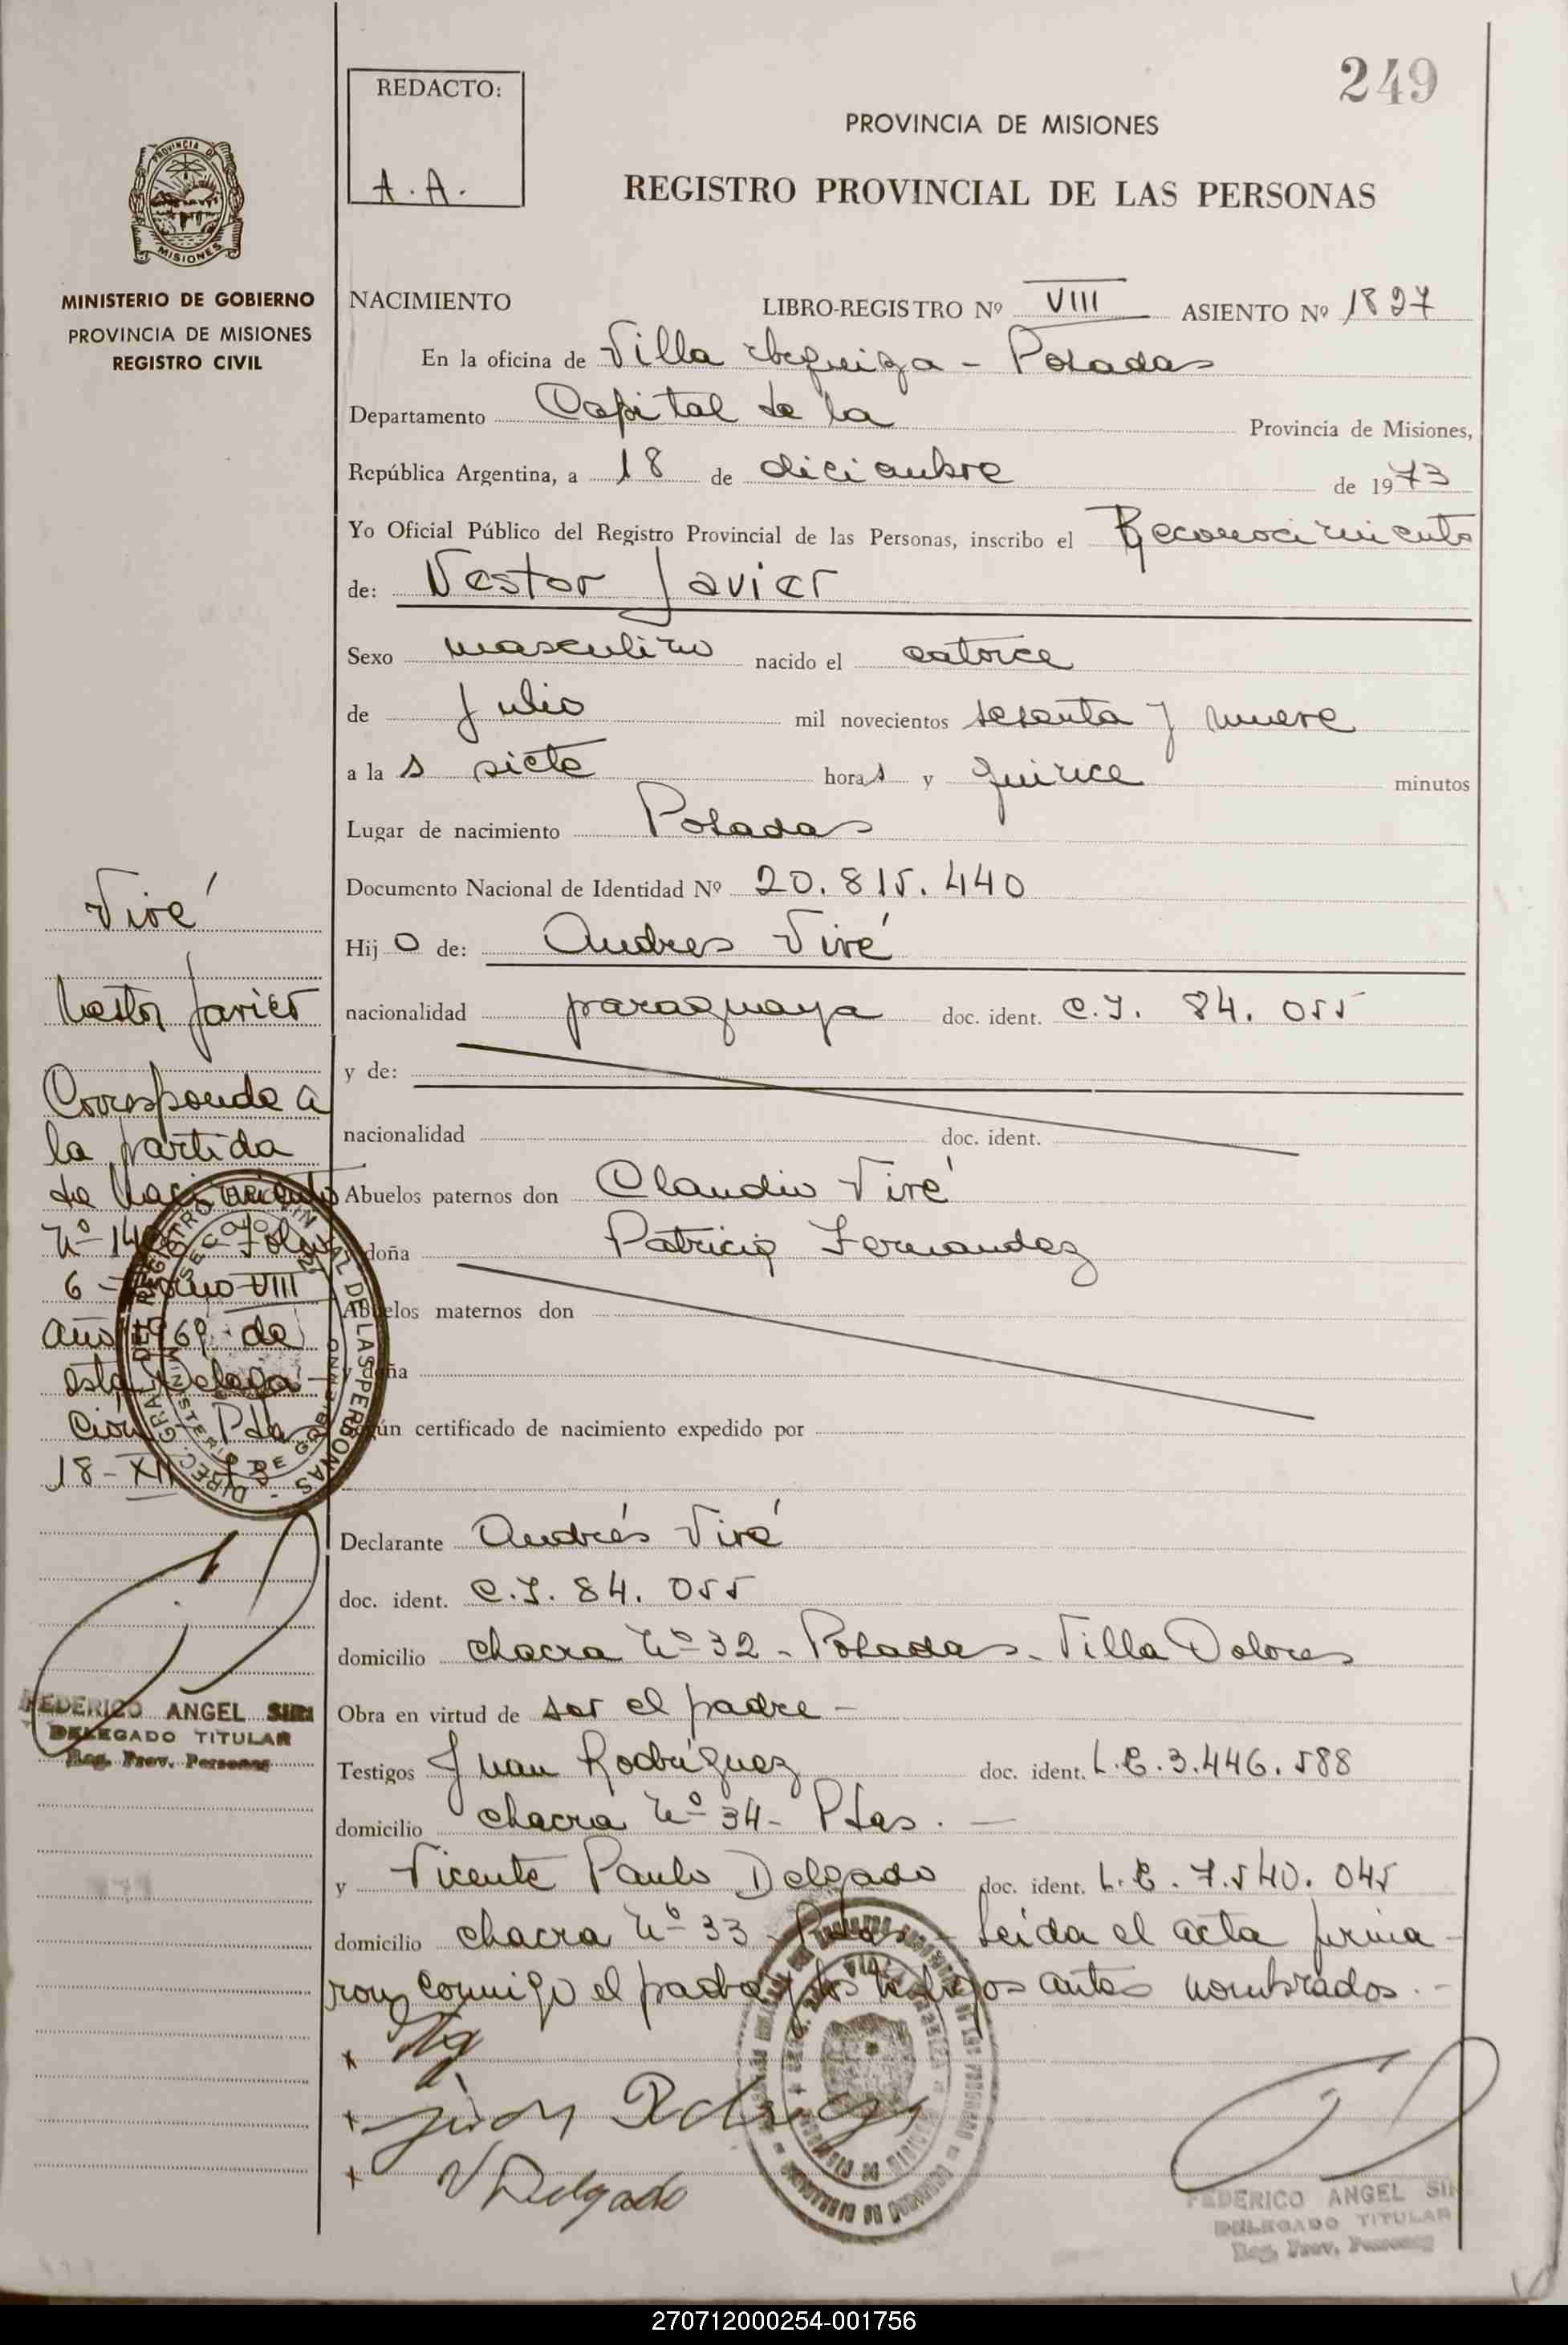 249
REDACTO:
A. A.
PROVINCIA DE MISIONES
REGISTRO PROVINCIAL DE LAS PERSONAS
PROVINCIA DE
MISIONES
MINISTERIO DE GOBIERNO
PROVINCIA DE MISIONES
REGISTRO CIVIL
NACIMIENTO LIBRO-REGISTRO Nº VIII ASIENTO Nº 1897
En la oficina de Villa Urquiza - Posadas
Departamento Capital de la Provincia de Misiones,
República Argentina, a 18 de diciembre de 1973
Yo Oficial Público del Registro Provincial de las Personas, inscribo el Reconocimiento
de: Nestor Javier
Sexo masculino nacido el catorce
de Julio mil novecientos sesenta y nueve
a las siete horas y quince minutos
Lugar de nacimiento Posadas
Documento Nacional de Identidad Nº 20.815.440
Hijo de: Andres Viré
nacionalidad paraguaya doc. ident. C.I. 84.055
y de:
nacionalidad doc. ident.
Abuelos paternos don Claudio Viré
y doña Patricia Fernandez
Abuelos maternos don
y doña
Según certificado de nacimiento expedido por
Declarante Andrés Viré
doc. ident. C.I. 84.055
domicilio chacra Nº 32 - Posadas - Villa Dolores
Obra en virtud de ser el padre -
Testigos Juan Rodríguez doc. ident. L.E. 3.446.588
domicilio chacra Nº 34 - Pdas. -
y Vicente Paulo Delgado doc. ident. L.E. 7.540.045
domicilio chacra Nº 33 - Pdas. - Leida el acta firma-
ron conmigo el padre y los testigos antes nombrados. -
x
x Juan Rodriguez
x V Delgado
Viré
Nestor Javier
Corresponde a
la partida
de Nacimiento
Nº Folio
6 - Tomo VIII
año 1969 de
esta Delega-
ción Pdas
18-XII-73
DIREC. GRAL. DEL REGISTRO PROVINCIAL DE LAS PERSONAS
MINISTERIO DE GOBIERNO
FEDERICO ANGEL SIRI
DELEGADO TITULAR
Reg. Prov. Personas
FEDERICO ANGEL SIRI
DELEGADO TITULAR
Reg. Prov. Personas
270712000254-001756